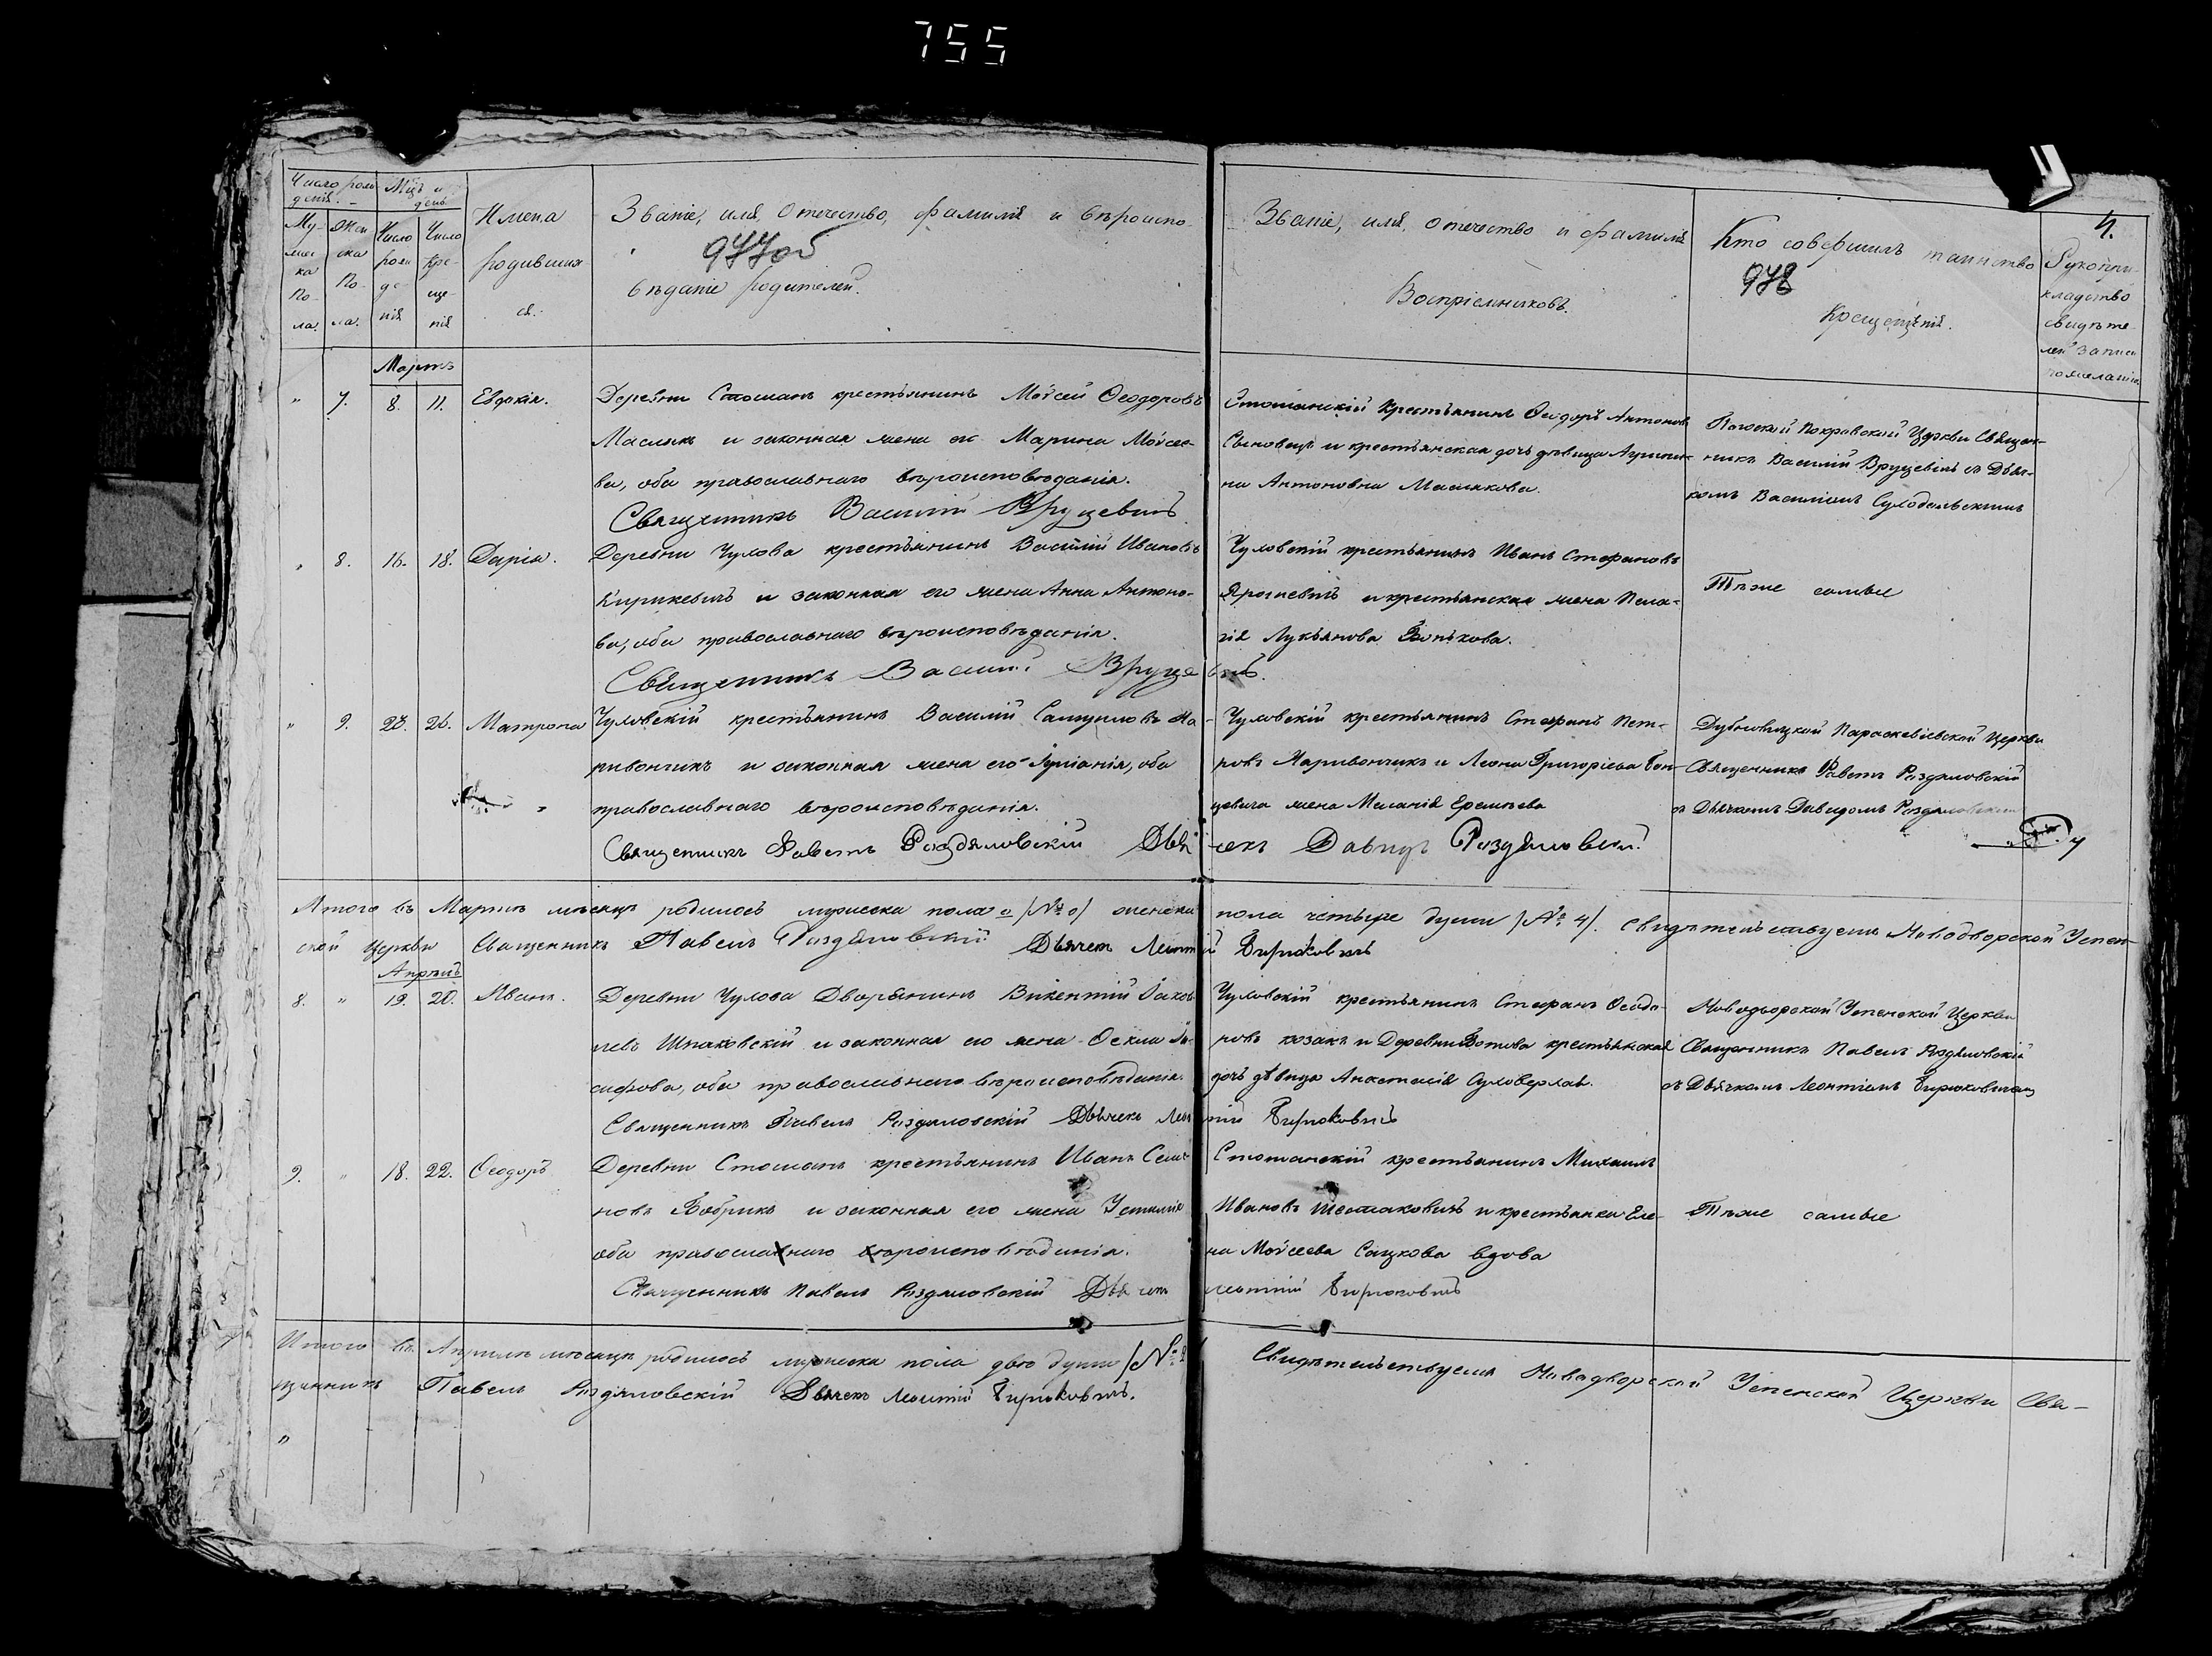 755
Число рож
денія.
Мѣцъ и
день
Му-
жес
ка
По-
ла.
Жен
ска
По-
ла.
Число
рож
де-
нія
Число
кре-
ще-
нія
Имена
родивших
ся.
Званіе, имя, отечество, фамилія и вѣроиспо-
977об
вѣданіе родителей.
Званіе, имя, отечество и фамилія
Воспріемниковъ.
Кто совершилъ таинство
978
Крещенія.
4.
Рукопри-
кладство
свидѣте-
лей записи
по желанію
Мартъ
" 7. 8. 11. Евдокія.
Деревни Стошанъ крестьянинъ Моѵсей Ѳеодоровъ
Маслыкъ и законная жена его Марина Моѵсее-
ва, оба православнаго вѣроисповѣданія.
Священникъ Василій Вруцевичъ
Стошанскій крестьянинъ Ѳеодоръ Антоновъ
и крестьянская дочь дѣвица Агрипи-
на Антоновна Маслыкова.
Покровской Церкви Священ-
никъ Василій Вруцевичъ съ Дьяч-
комъ Василіемъ Сулодольскимъ
" 8. 16. 18. Дарія.
Деревни Чулова крестьянинъ Василій Ивановъ
Кирикевичъ и законная его жена Анна Антоно-
ва, оба православнаго вѣроисповѣданія.
Священникъ Василій Вруцевичъ.
Чуловскій крестьянинъ Иванъ Стефановъ
Ярошевичъ и крестьянская жена Пела-
гія Лукьянова
Тѣже самые
" 9. 23. 26. Матрона
Чуловскій крестьянинъ Василій Самуиловъ На-
ривончикъ и законная жена его Іуліанія, оба
православнаго вѣроисповѣданія.
Священникъ Павелъ Роздяловскій Дьячекъ Давидъ Роздяловскій
Чуловскій крестьянинъ Стефанъ Пет-
ровъ Наривончикъ и Леона Григоріева Бон-
цевича жена Меланія Еремѣева
Дубновицкой Параскевіевской Церкви
Священникъ Павелъ Роздяловскій
съ Дьячкомъ Давидомъ Роздяловскимъ
Итого въ Мартѣ мѣсяцѣ родилось мужеска пола 0 /№ 0/ женска пола четыре души /№ 4/. Свидѣтельствуемъ Новодворской Успен-
ской Церкви Священникъ Павелъ Роздяловскій Дьячекъ Леонтій Бирюковичъ
Апрѣль
8. " 19. 20. Иванъ.
Деревни Чулова Дворянинъ Викентій Іаков-
левъ Шпаковскій и законная его жена Ѳекла Іо-
сифова, оба православнаго вѣроисповѣданія.
Священникъ Павелъ Роздяловскій Дьячекъ Леонтій Бирюковичъ
Чуловскій крестьянинъ Стефанъ
козакъ и Деревни крестьянская
дочь дѣвица Анастасія
Новодворской Успенской Церкви
Священникъ Павелъ Роздяловскій
съ Дьячкомъ Леонтіемъ Бирюковичемъ
9. " 18. 22. Ѳеодоръ
Деревни Стошанъ крестьянинъ Иванъ Семе-
новъ Бобрикъ и законная его жена Устинія
оба православнаго вѣроисповѣданія.
Священникъ Павелъ Роздяловскій Дьячекъ Леонтій Бирюковичъ
Стошанскій крестьянинъ Михаилъ
Ивановъ Шестаковичъ и крестьянка Еле-
на Моѵсеева Сацкова вдова
Тѣже самые
Итого въ Апрѣлѣ мѣсяцѣ родилось мужеска пола двѣ души /№ 2/ Свидѣтельствуемъ Новадворской Успенской Церкви Свя-
щенникъ Павелъ Роздяловскій Дьячекъ Леонтій Бирюковичъ.
"